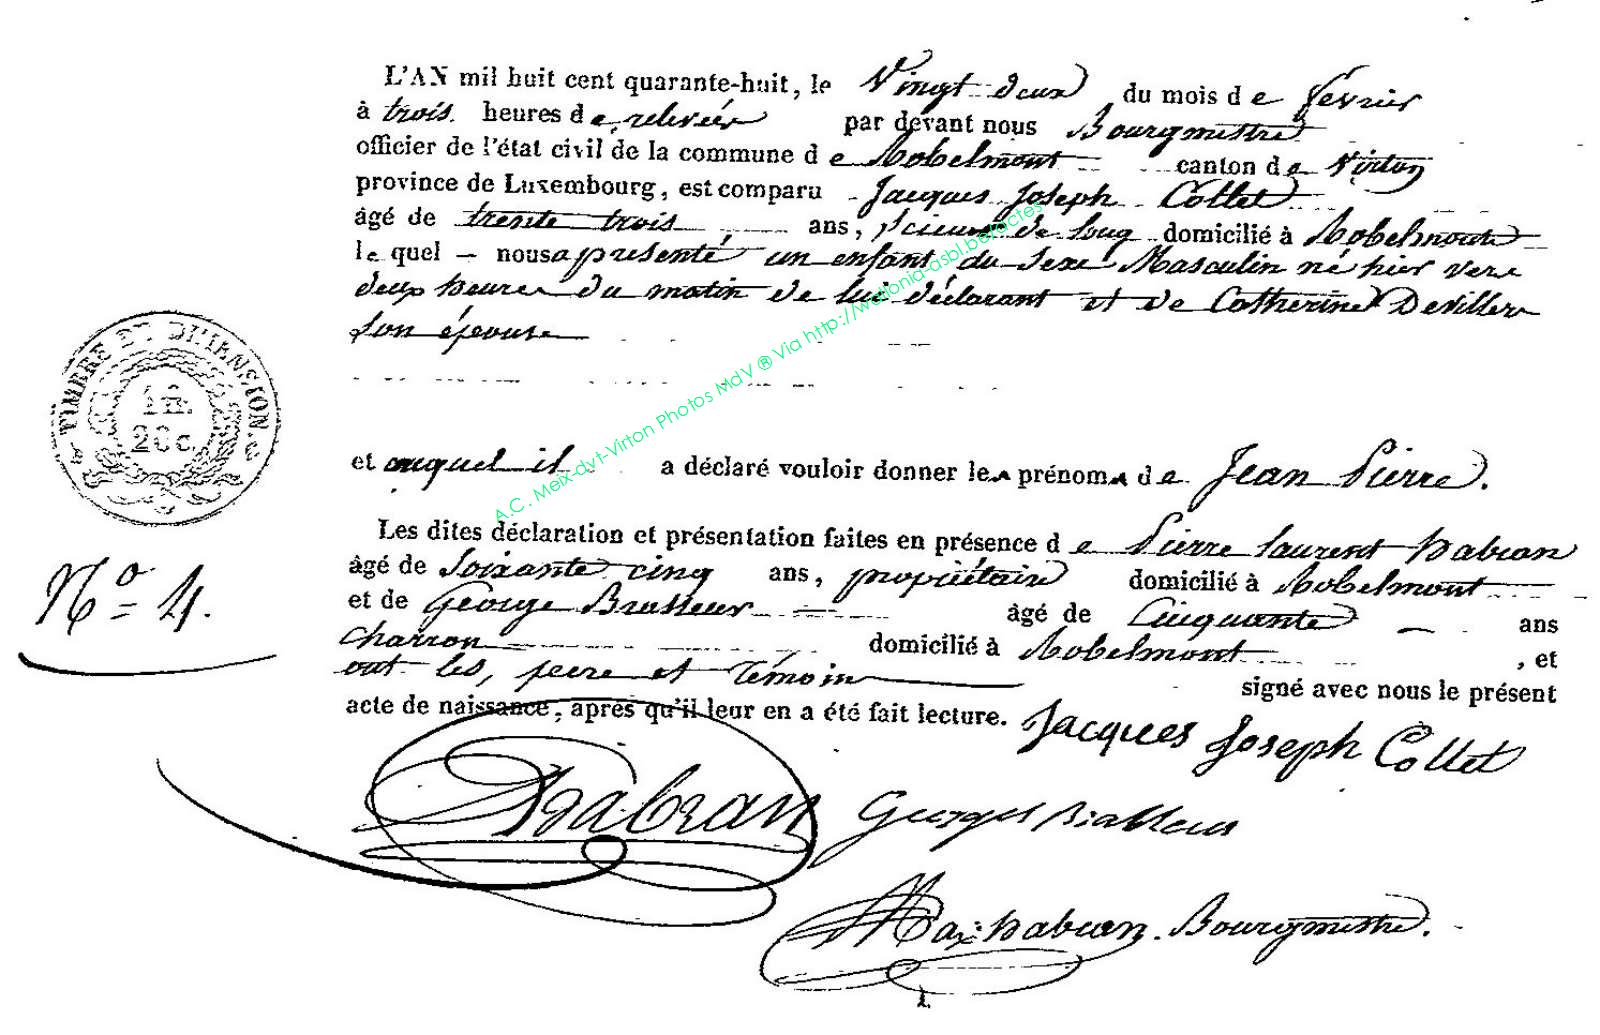 L'AN mil huit cent quarante-huit, le Vingt deux du mois de février
à trois heures de relevée par devant nous Bourgmestre
officier de l'état civil de la commune de Robelmont canton de Virton
province de Luxembourg, est comparu Jacques Joseph Collet
âgé de trente trois ans, scieur de long domicilié à Robelmont
le quel — nous a présenté un enfant du sexe Masculin né hier vers
deux heures du matin de lui déclarant et de Catherine Devillers
son épouse
TIMBRE ET DIMENSION.
1 fr.
20 c.
et auquel il a déclaré vouloir donner les prénoms de Jean Pierre.
Les dites déclaration et présentation faites en présence de Pierre Laurent habran
âgé de soixante cinq ans, propriétaire domicilié à Robelmont
et de George Brasseur âgé de Cinquante ans
charron domicilié à Robelmont, et
ont les, pere et témoin signé avec nous le présent
acte de naissance, après qu'il leur en a été fait lecture.
N° 4.
Jacques Joseph Collet
habran
Georges Brasseur
habran Bourgmestre.
A.C. Meix-dvt-Virton Photos MdV ® Via http://wallonia-asbl.be/actes